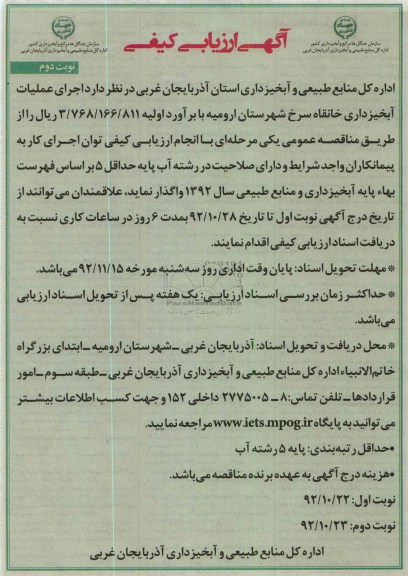 آگهی ارزیابی کیفی
سازمان جنگل ها، مراتع و آبخیزداری کشور
اداره کل منابع طبیعی و آبخیزداری آذربایجان غربی
سازمان جنگل ها، مراتع و آبخیزداری کشور
اداره کل منابع طبیعی و آبخیزداری آذربایجان غربی
نوبت دوم
اداره کل منابع طبیعی و آبخیزداری استان آذربایجان غربی در نظر دارد اجرای عملیات
آبخیزداری خانقاه سرخ شهرستان ارومیه با برآورد اولیه ۳/۷۶۸/۱۶۶/۸۱۱ ریال را از
طریق مناقصه عمومی یک مرحله‌ای با انجام ارزیابی کیفی توان اجرای کار به
پیمانکاران واجد شرایط و دارای صلاحیت در رشته آب پایه حداقل ۵ بر اساس فهرست
بهاء پایه آبخیزداری و منابع طبیعی سال ۱۳۹۲ واگذار نماید، علاقمندان می‌توانند از
تاریخ درج آگهی نوبت اول تا تاریخ ۹۲/۱۰/۲۸ بمدت ۶ روز در ساعات کاری نسبت به
دریافت اسناد ارزیابی کیفی اقدام نمایند.
* مهلت تحویل اسناد: پایان وقت اداری روز سه‌شنبه مورخه ۹۲/۱۱/۱۵ می‌باشد.
* حداکثر زمان بررسی اسناد ارزیابی: یک هفته پس از تحویل اسناد ارزیابی
می‌باشد.
* محل دریافت و تحویل اسناد: آذربایجان غربی ـ شهرستان ارومیه ـ ابتدای بزرگراه
خاتم‌الانبیاء اداره کل منابع طبیعی و آبخیزداری آذربایجان غربی ـ طبقه سوم ـ امور
قراردادها ـ تلفن تماس: ۸ ـ ۲۷۷۵۰۰۵ داخلی ۱۵۲ و جهت کسب اطلاعات بیشتر
می‌توانید به پایگاه www.iets.mpog.ir مراجعه نمایید.
•حداقل رتبه‌بندی: پایه ۵ رشته آب
•هزینه درج آگهی به عهده برنده مناقصه می‌باشد.
نوبت اول: ۹۲/۱۰/۲۲
نوبت دوم: ۹۲/۱۰/۲۳
اداره کل منابع طبیعی و آبخیزداری آذربایجان غربی